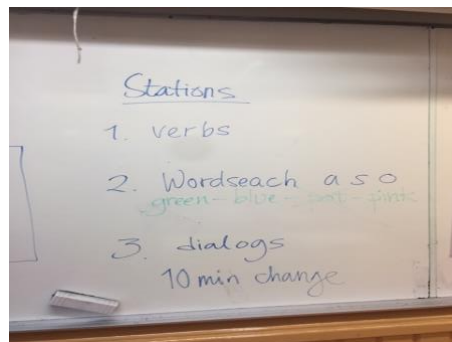 Stations
1. verbs
2. Wordseach a s o
green - blue - - pink
3. dialogs
10 min change